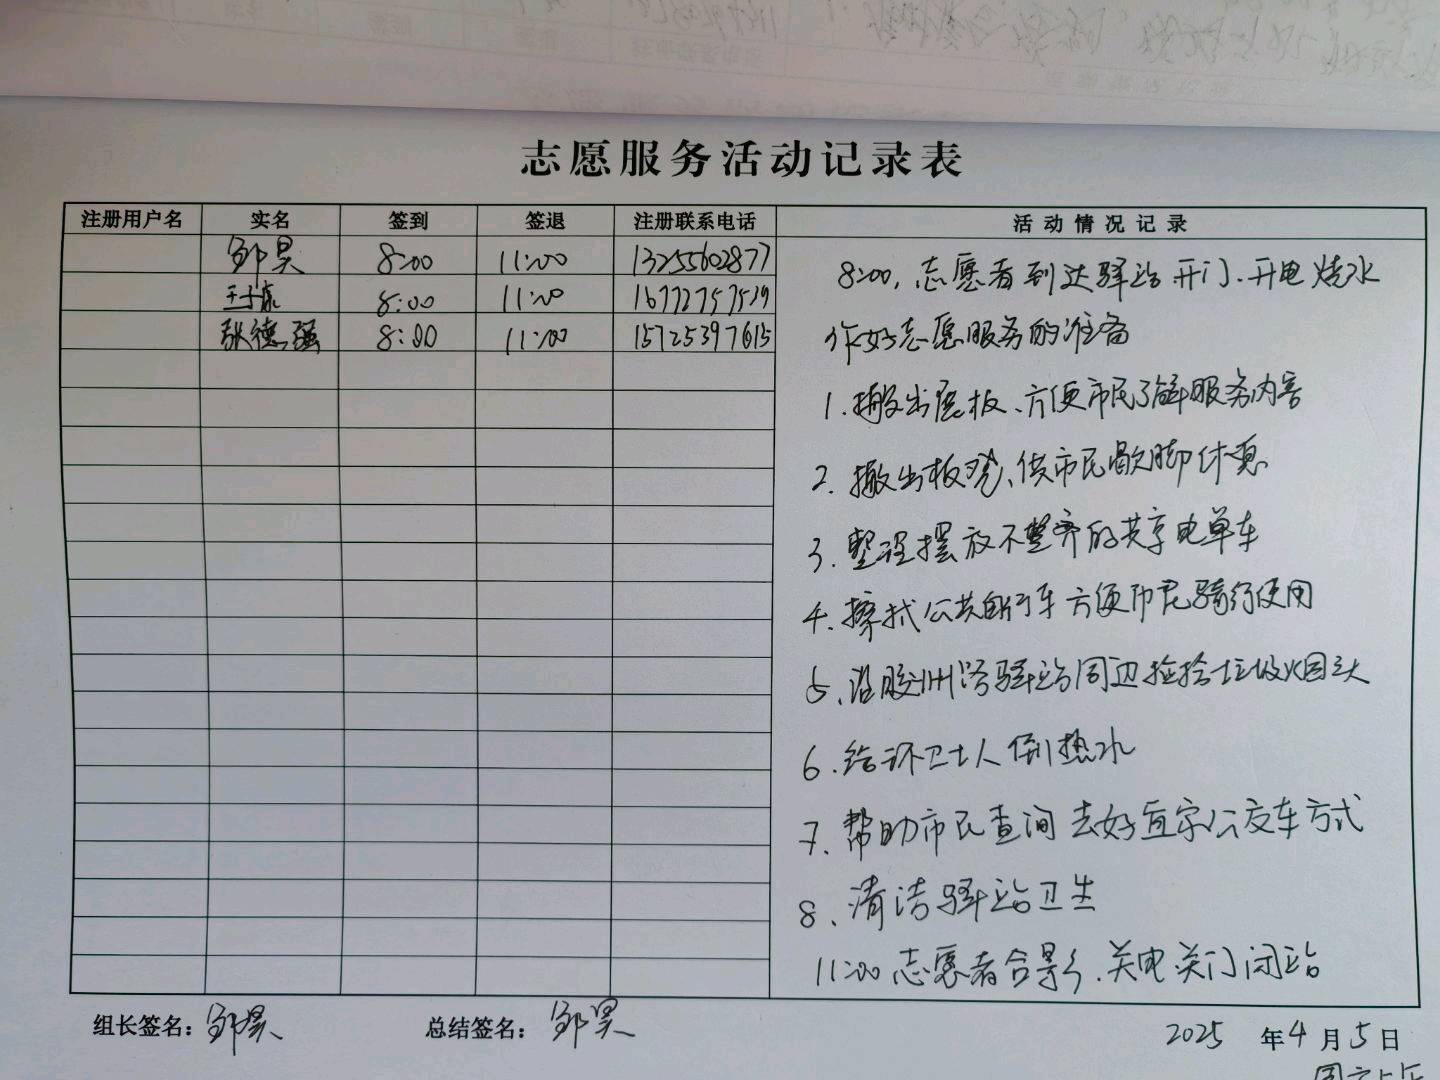 志愿服务活动记录表
注册用户名 实名 签到 签退 注册联系电话 活动情况记录
邹昊 8:00 11:00 13255602877
8:00 11:00 16772757539
张德强 8:00 11:00 15725397615
8:00,志愿者到达驿站开门、开电烧水
作好志愿服务的准备
1.搬出展板、方便市民了解服务内容
2.搬出板凳、供市民歇脚休息
3.整理摆放不整齐的共享电单车
4.擦拭公共自行车方便市民骑行使用
5、沿胶州路驿站周边捡拾垃圾烟头
6.给环卫士人倒热水
7、帮助市民查询去好宜家公交车方式
8、清洁驿站卫生
11:00志愿者合影、关电关门闭站
组长签名:邹昊 总结签名:邹昊
2025年4月5日